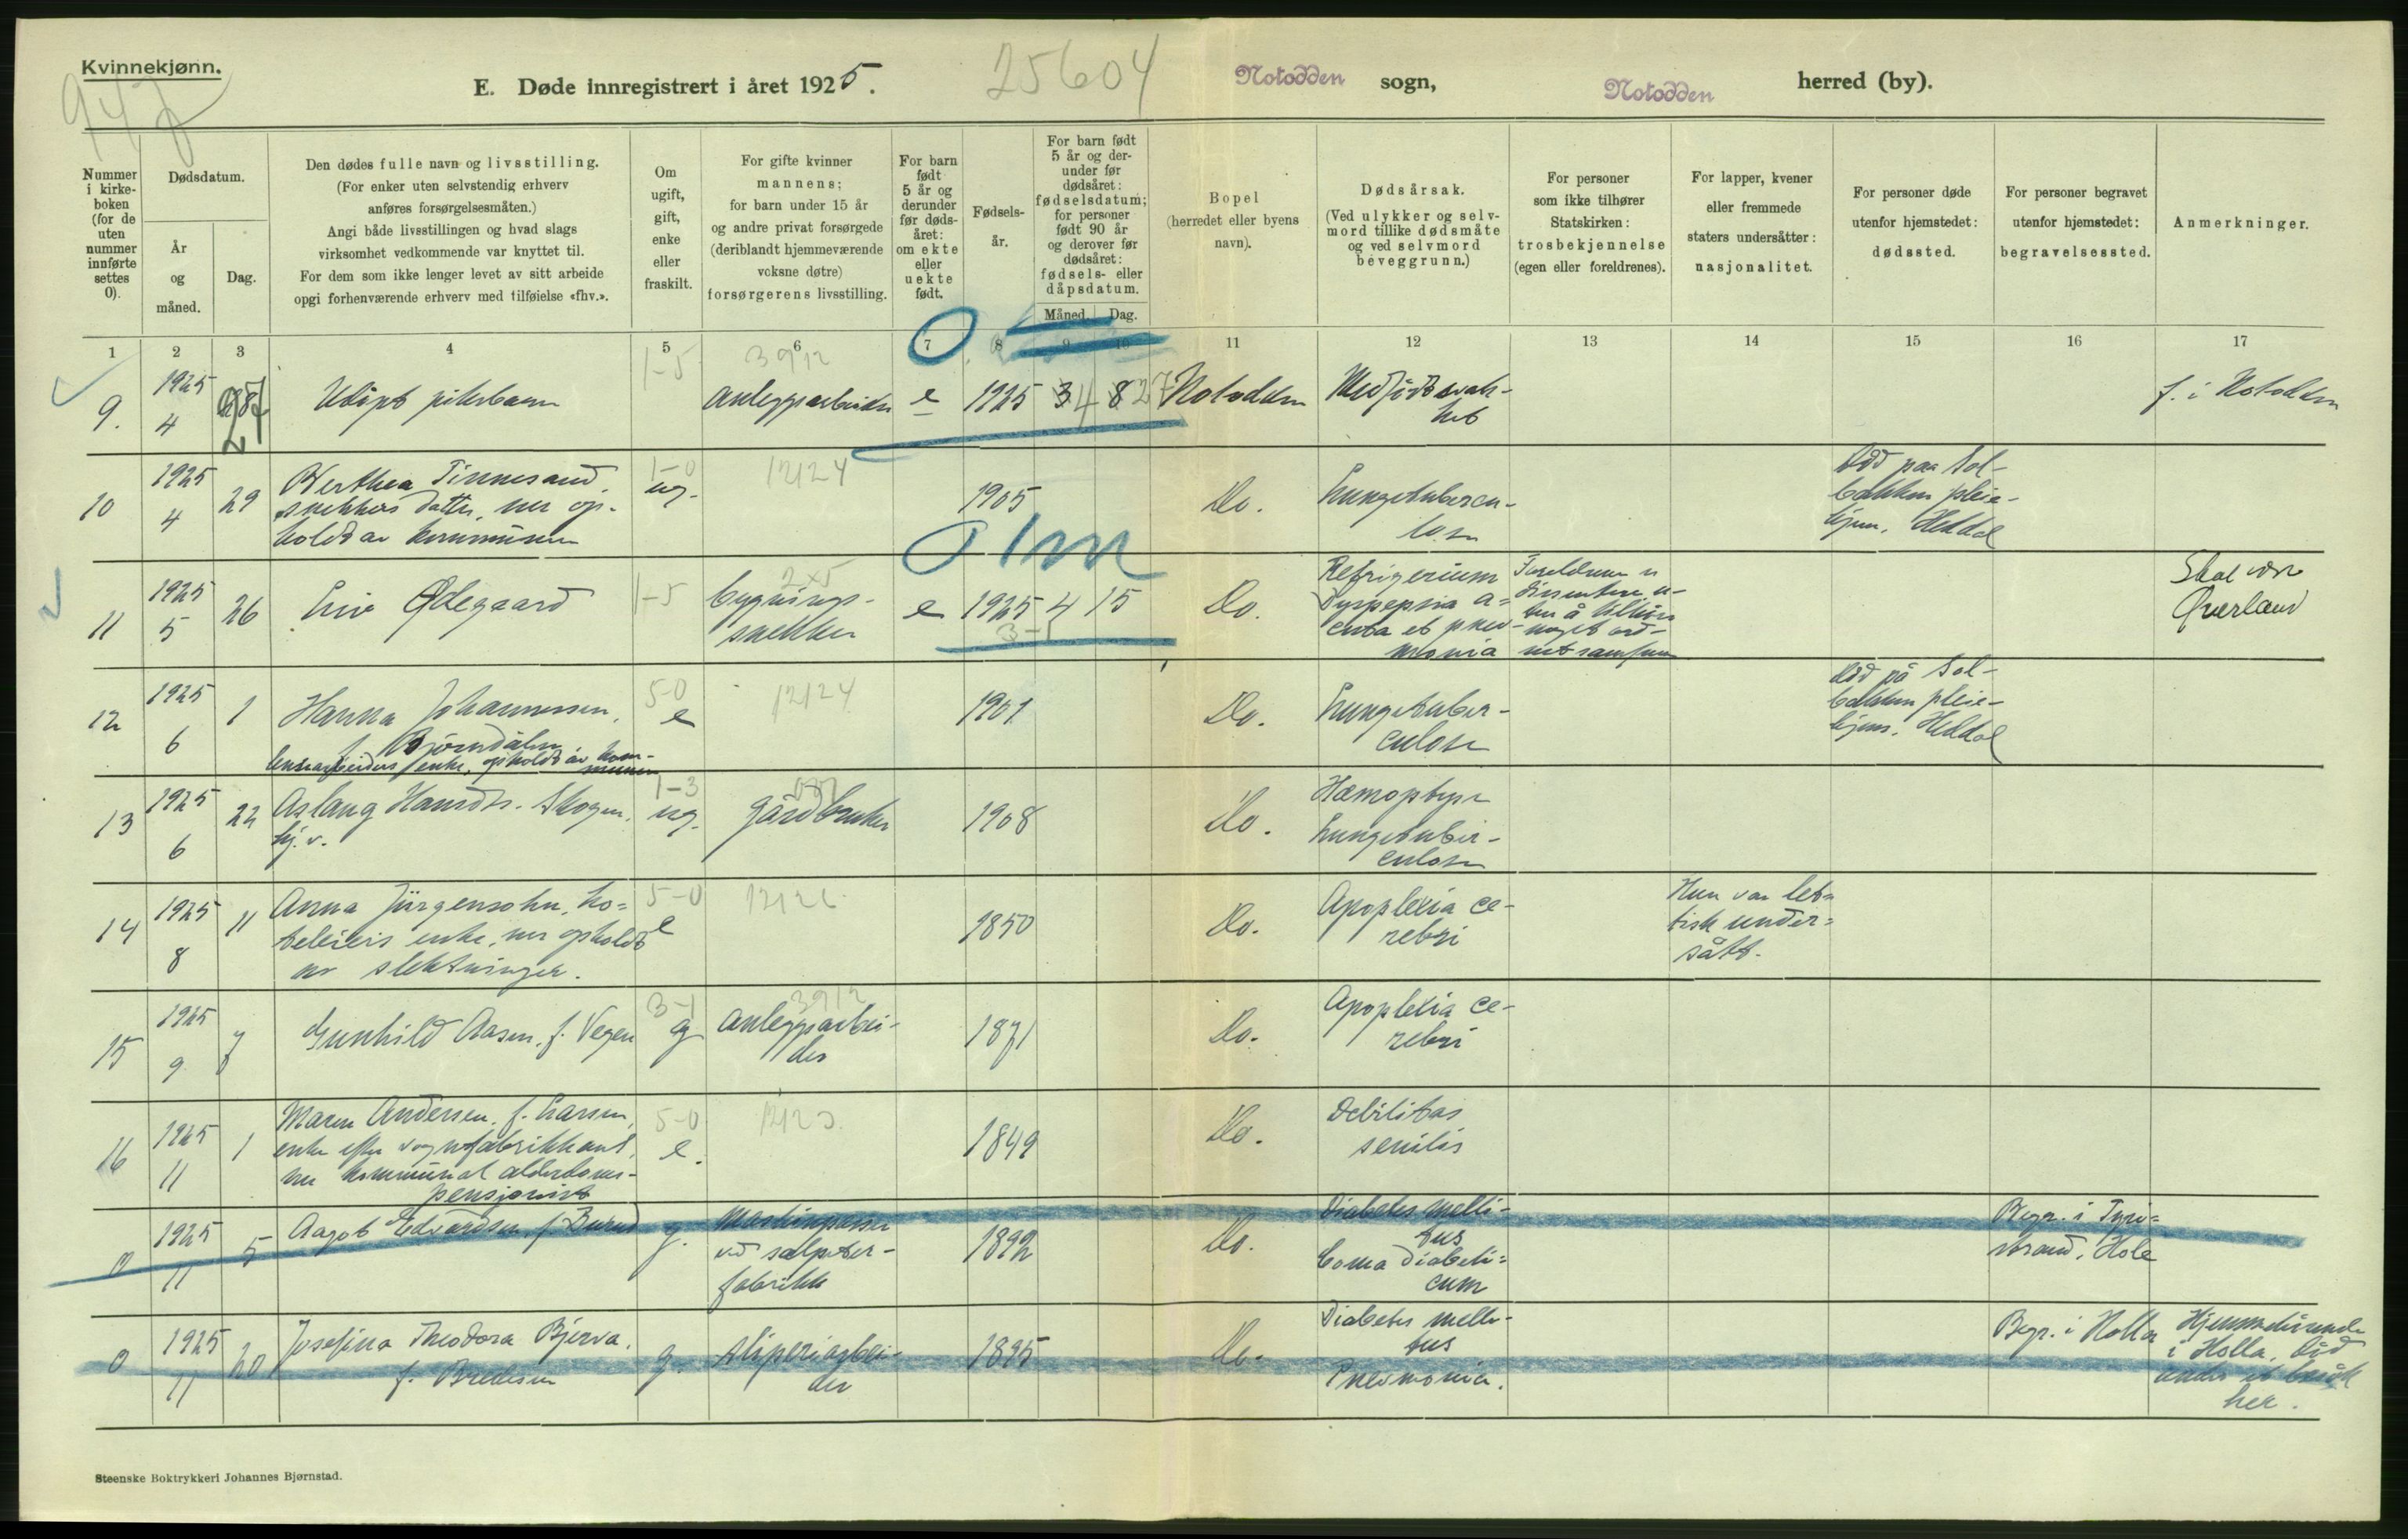 Kvinnekjønn.
E. Døde innregistrert i året 1925.
25604
Notodden sogn,
Notodden herred (by).
Nummer i kirke-boken (for de uten nummer innførte settes 0).
Dødsdatum.
År og måned.
Dag.
Den dødes fulle navn og livsstilling.
(For enker uten selvstendig erhverv
anføres forsørgelsesmåten.)
Angi både livsstillingen og hvad slags
virksomhet vedkommende var knyttet til.
For dem som ikke lenger levet av sitt arbeide
opgi forhenværende erhverv med tilføielse «fhv.».
Om
ugift,
gift,
enke
eller
fraskilt.
For gifte kvinner
mannens;
for barn under 15 år
og andre privat forsørgede
(deriblandt hjemmeværende
voksne døtre)
forsørgerens livsstilling.
For barn
født
5 år og
derunder
før døds-
året:
om ekte
eller
uekte
født.
Fødsels-
år.
For barn født
5 år og der-
under før
dødsåret:
fødselsdatum;
for personer
født 90 år
og derover før
dødsåret:
fødsels- eller
dåpsdatum.
Måned. Dag.
Bopel
(herredet eller byens
navn).
Dødsårsak.
(Ved ulykker og selv-
mord tillike dødsmåte
og ved selvmord
beveggrunn.)
For personer
som ikke tilhører
Statskirken:
trosbekjennelse
(egen eller foreldrenes).
For lapper, kvener
eller fremmede
staters undersåtter:
nasjonalitet.
For personer døde
utenfor hjemstedet:
dødssted.
For personer begravet
utenfor hjemstedet:
begravelsessted.
Anmerkninger.
1 2 3 4 5 6 7 8 9 10 11 12 13 14 15 16 17
9. 1925 4 Udøpt pikebarn 1-5 3912 anleggsarbeider e 1925 4 27 Notodden Medfødt svak-
het
f. i Notodden
10 1925 4 29 Berthea Tinnesand,
snekkers datter, ner op-
holdt av kommunen
1-0 ug. 12124 1905 Do. Lungetubercu-
lose
Død paa Sol-
bakken pleie-
hjem, Heddal
11 1925 5 26 Liv Ødegaard 1-5 bygnings-
snekker
e 1925 4 15 Do. Refrigerium
Dyspepsia a=
cuta et pneu-
monia
Foreldrene er
dissentere u-
ten å tilhøre
noget ord-
net samfunn
Skal være
Øverland
12 1925 6 1 Hanna Johannessen,
f. Bjørndalen
arbeiders enke, opholdt av kom-
munen
5-0 e 12124 1901 Do. Lungetuber-
culose
Død på Sol-
bakken pleie-
hjem, Heddal
13 1925 6 22 Aslaug Hansdtr. Skogen,
hj. v.
1-3 ug. gårdbruker 1908 Do. Hæmoptyse
Lungetuber-
culose
14 1925 8 11 Anna Jürgensohn, ho=
teleiers enke, ner opholdt
av slektninger.
5-0 e 1850 Do. Apoplexia ce-
rebri
Hun var let=
tisk under=
sått.
15 1925 9 7 Gunhild Aasen, f. Vegen 3-1 g 3912 anleggsarbei-
der
1871 Do. Apoplexia ce-
rebri
16 1925 11 1 Maren Andersen, f. Larsen,
enke efter vognfabrikkant,
ner kommunal alderdoms-
pensjonist
5-0 e. 1849 Do. Debilitas
senilis
0 1925 11 5 Aagot Edvardsen, f. Burud g. Maskinpasser
ved salpeter-
fabrikk
1892 Do. Diabetes melli-
tus
Coma diabeti=
cum
Begr. i Tyri=
strand, Hole
0 1925 11 20 Josefina Theodora Bjerva,
f. Bredesen
g. sliperiarbei-
der
1895 Do. Diabetes melli-
tus
Pneumonia.
Begr. i Holla
Hjemmehørende
i Holla, død
under et besøk
her.
Steenske Boktrykkeri Johannes Bjørnstad.